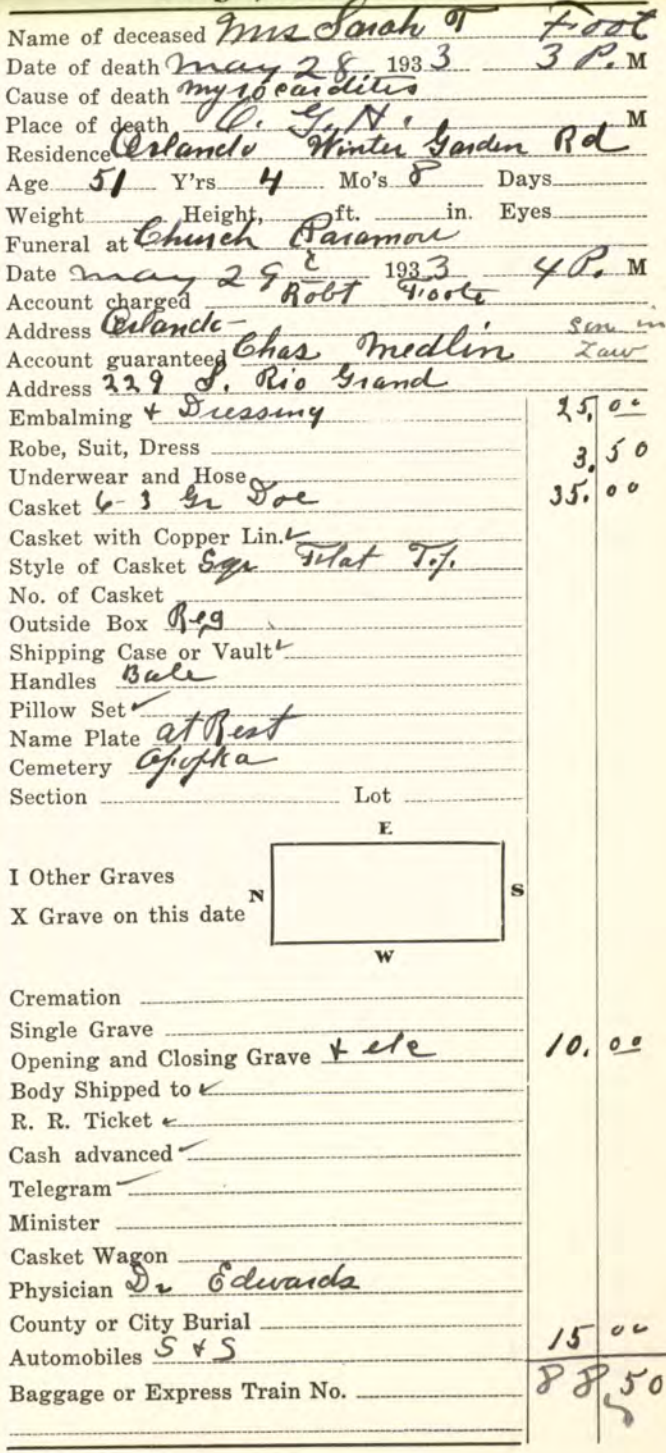 Name of deceased Mrs Sarah T Foot
Date of death May 28 1933 3 P. M
Cause of death myrocarditis
Place of death O. G. H. M
Residence Orlando Winter Garden Rd
Age 51 Y'rs 4 Mo's 8 Days
Weight Height, ft. in. Eyes
Funeral at Church Paramore
Date May 29 1933 4 P. M
Account charged Robt Foote
Address Orlando son in
Account guaranteed Chas Medlin Law
Address 229 S. Rio Grand
Embalming + Dressing 25.00
Robe, Suit, Dress
Underwear and Hose 3.50
Casket 6-3 Gr Doe 35.00
Casket with Copper Lin.
Style of Casket Sqr Flat T.
No. of Casket
Outside Box Reg
Shipping Case or Vault
Handles
Pillow Set
Name Plate at Rest
Cemetery Apopka
Section Lot
E
I Other Graves
N S
X Grave on this date
W
Cremation
Single Grave
Opening and Closing Grave + etc 10.00
Body Shipped to
R. R. Ticket
Cash advanced
Telegram
Minister
Casket Wagon
Physician Dr Edwards
County or City Burial
Automobiles S & S 15 00
Baggage or Express Train No. 88.50